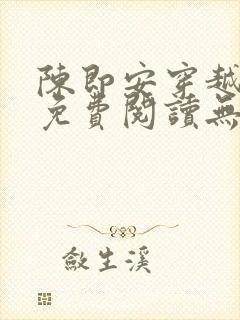 陳即安穿越
免費閱讀無
斂生溪